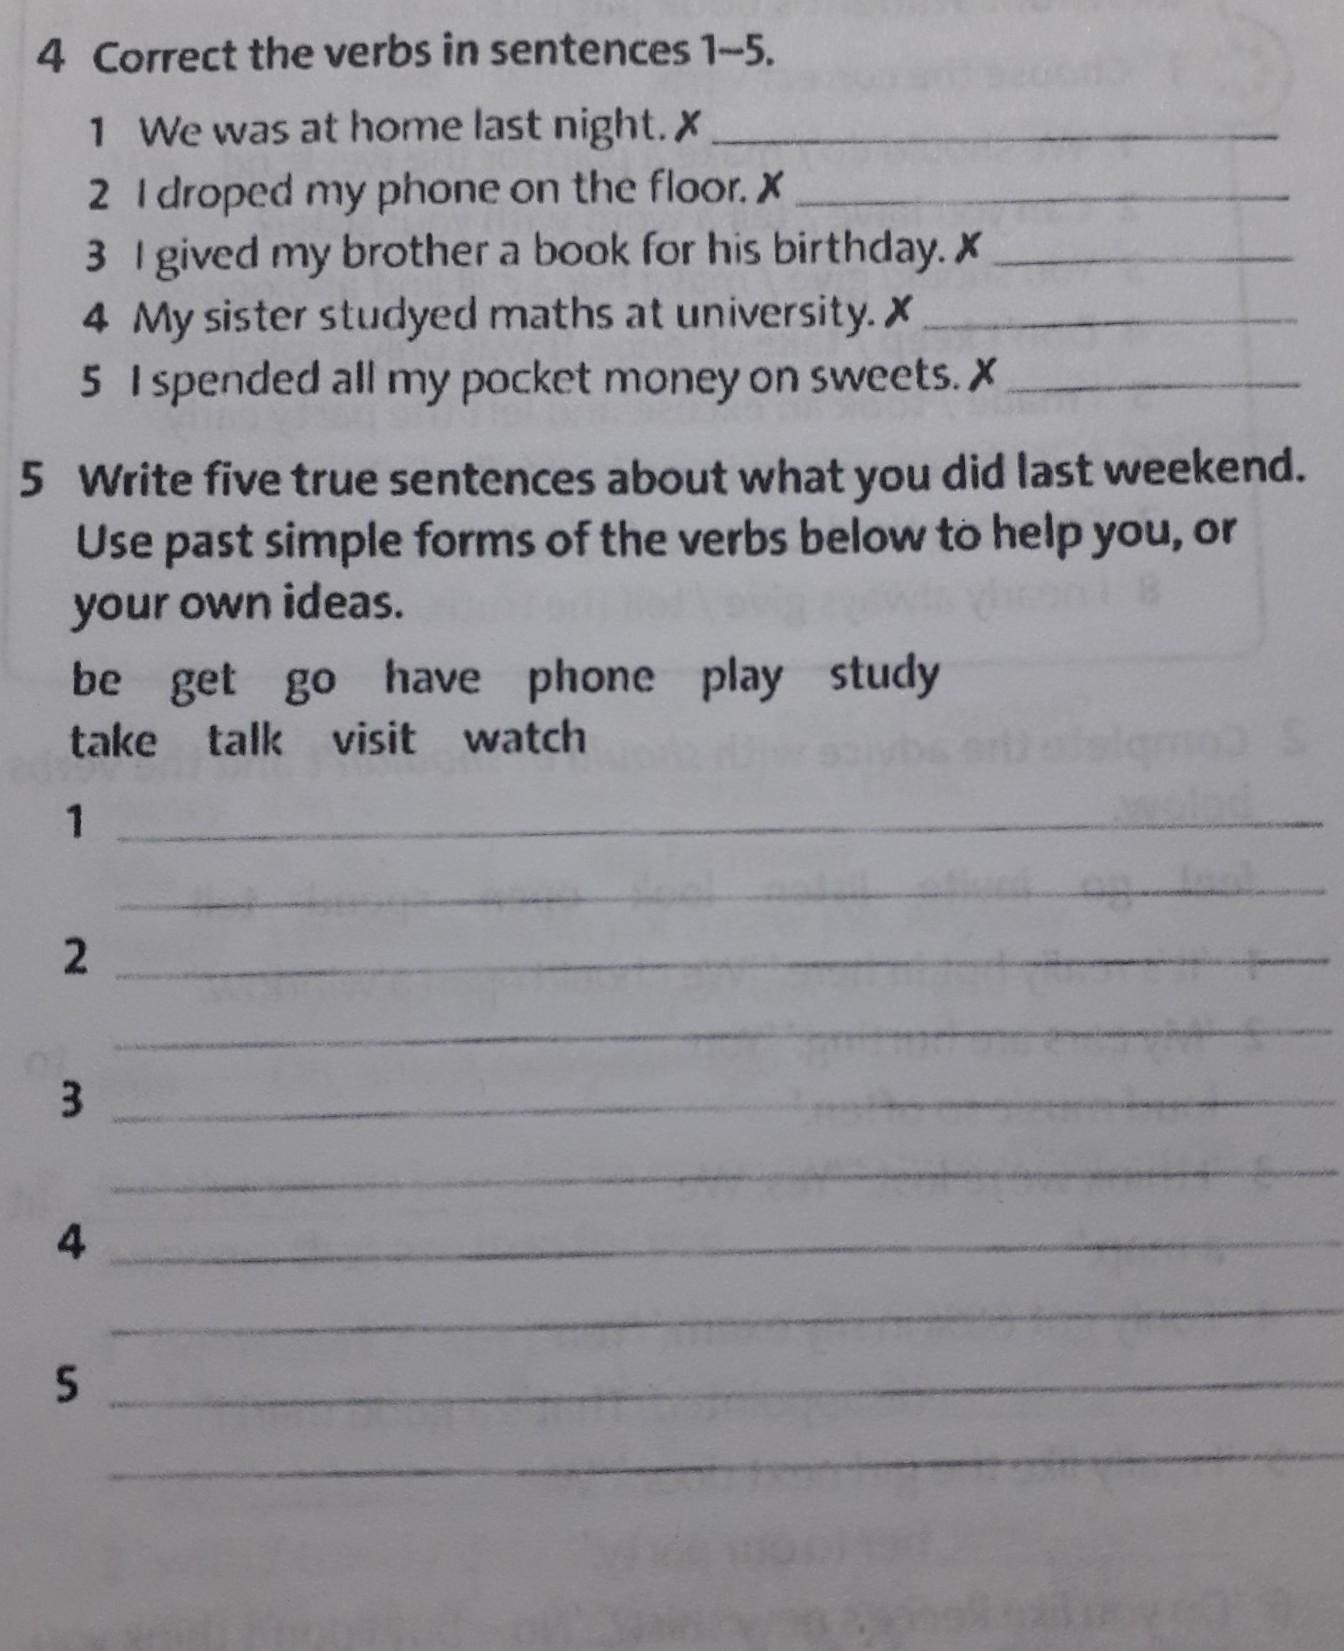 4 Correct the verbs in sentences 1–5.
1 We was at home last night. ✗
2 I droped my phone on the floor. ✗
3 I gived my brother a book for his birthday. ✗
4 My sister studyed maths at university. ✗
5 I spended all my pocket money on sweets. ✗
5 Write five true sentences about what you did last weekend.
Use past simple forms of the verbs below to help you, or
your own ideas.
be get go have phone play study
take talk visit watch
1
2
3
4
5